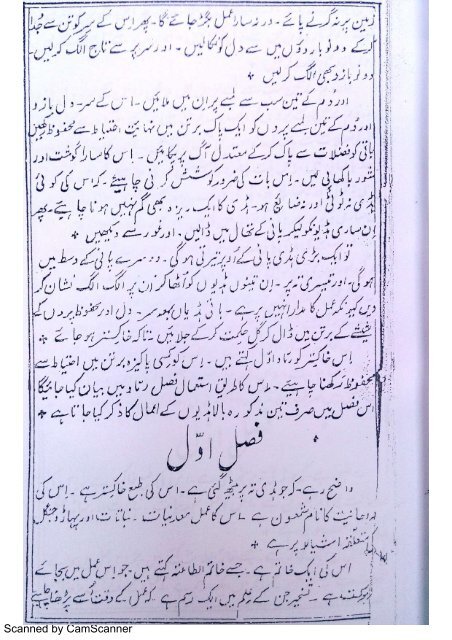 زمین پر نہ گرنے پائے۔ ورنہ سارا عمل بگڑ جائے گا۔ پھر اس کے سر کو تن سے جدا
کرکے دونو بازوؤں میں سے دل کو نکالیں۔ اور سر پر سے تاج الگ کرلیں۔
دونو بازو بھی الگ کرلیں
اور دُم کے تین سب سے لمبے پر ان میں ملائیں۔ اس کے سر۔ دل بازو
اور دُم کے تین لمبے پروں کو ایک پاک برتن میں نہایت احتیاط سے محفوظ رکھیں
باقی کو فضلات سے پاک کرکے معتدل آگ پر پکائیں۔ اس کا سارا گوشت اور
شوربا کھا پی لیں۔ اس بات کی ضرور کوشش کرنی چاہیئے۔ کہ اس کی کوئی
ہڈی نہ ٹوٹے اور نہ ضائع ہو۔ ہڈی کا ایک ریزہ بھی گم نہیں ہونا چاہیئے۔ پھر
ان ساری ہڈیوں کو لیکر پانی کے میں ڈالیں۔ اور غور سے دیکھیں
تو ایک بڑی ہڈی پانی کے اُوپر تیرتی ہوگی۔ دوسرے پانی کے وسط میں
ہوگی۔ اور تیسری تہ پر۔ ان تینوں ہڈیوں کو اُٹھا کر ان پر الگ الگ نشان کر
دیں کیونکہ عمل کا مدار انہیں پر ہے۔ باقی ہڈیاں بمعہ سر۔ دل اور محفوظ پروں کے
شیشے کے برتن میں ڈال کر گل حکمت کرکے جلائیں تاکہ خاکستر ہو جائے
اس خاکستر کو رماد اوّل کہتے ہیں۔ اس کو کسی پاکیزہ برتن میں احتیاط سے
محفوظ رکھنا چاہیئے۔ اس کا طریق استعمال فصل رماد میں بیان کیا جائیگا
اس فصل میں صرف تین مذکورہ بالا ہڈیوں کے اعمال کا ذکر کیا جاتا ہے
فصل اوّل
واضح رہے۔ کہ جو ہڈی تہ پر بیٹھ گئی ہے۔ اس کی طبع خاک ہے۔ اس کی
روحانیت کا نام شمعون ہے۔ اس کا عمل معدنیات۔ نباتات اور پہاڑ و جنگل
کے متعلقہ اشیا پر ہے
اس کی ایک خاتم ہے۔ جسے خاتم الطاعتہ کہتے ہیں۔ جو اس عمل میں بجائے
ہے۔ کے علم میں ایک رسم ہے۔ کہ عمل کے وقت اُسے پڑھنا چاہیئے
Scanned by CamScanner